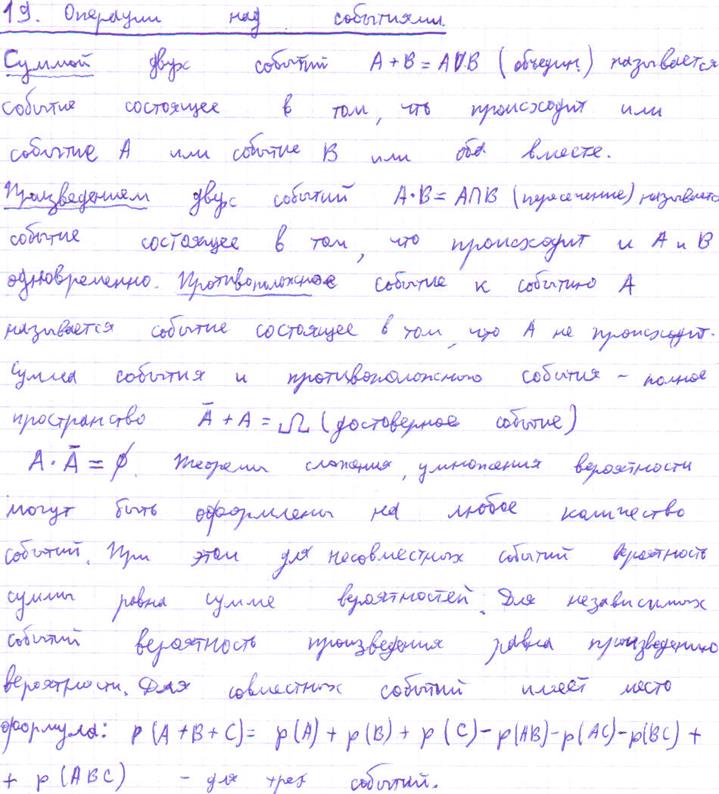 19. Операции над событиями.
Суммой двух событий A+B = A∪B (объедин.) называется
событие состоящее в том, что происходит или
событие A или событие B или оба вместе.
Произведением двух событий A·B = A∩B (пересечение) называется
событие состоящее в том, что происходит и A и B
одновременно. Противоположное событие к событию A
называется событие состоящее в том, что A не происходит.
Сумма события и противоположного события – полное
пространство Ā + A = Ω (достоверное событие)
A · Ā = ∅. Теоремы сложения, умножения вероятности
могут быть оформлены на любое количество
событий. При этом для несовместных событий вероятность
суммы равна сумме вероятностей. Для независимых
событий вероятность произведения равна произведению
вероятности. Для совместных событий имеет место
формула: p(A+B+C) = p(A) + p(B) + p(C) – p(AB) – p(AC) – p(BC) +
+ p(ABC) – для трех событий.